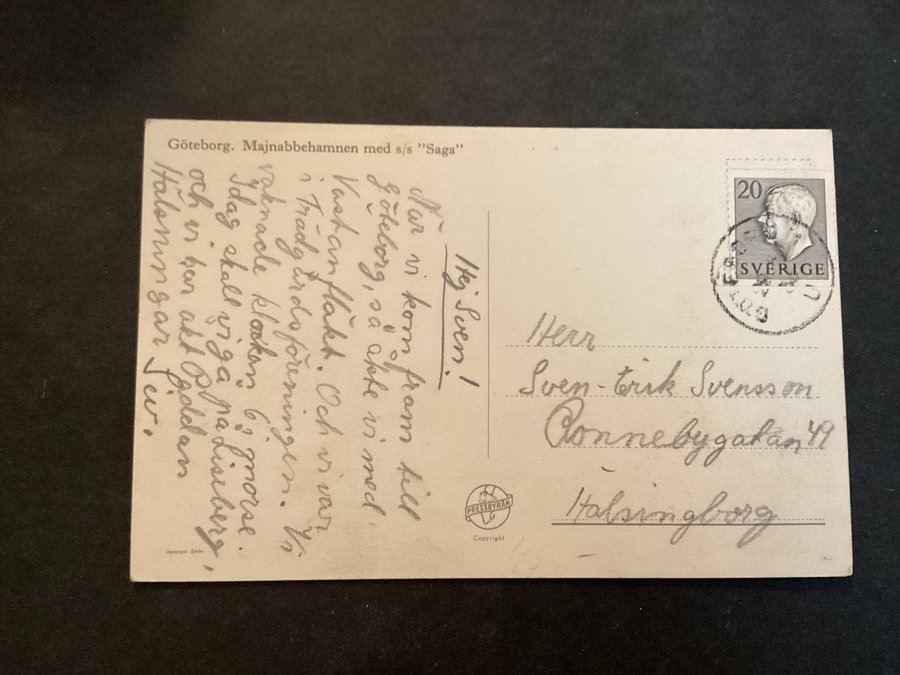 Göteborg. Majnabbehamnen med s/s "Saga"
Hej Sven!
När vi kom fram till
Göteborg, så åkte vi med
Västanfläkt. Och vi var
i Trädgårdsföreningen. Vi
vaknade klockan 6 i morse.
Idag skall vi gå på Liseberg,
och vi har åkt Paddan
Hälsningar Siv.
20
SVERIGE
Herr
Sven-Erik Svensson
Ronnebygatan 49
Hälsingborg
PRESSBYRÅN
Copyright